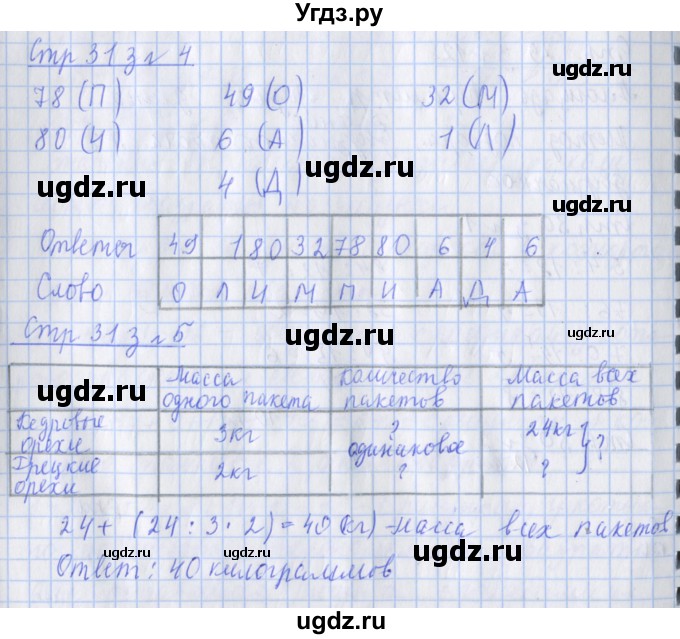 Угдз.ру
Стр 31 з № 4
ugdz.ru
78 (П) 49 (О) 32 (М)
80 (И) 6 (А) 1 (Л)
ugdz.ru
ugdz.ru ugdz.ru
4 (Д)
Ответы 49 1 80 32 78 80 6 4 6
Слово О Л И М П И А Д А
Стр 31 з № 5
ugdz.ru ugdz.ru
Масса одного пакета Количество пакетов Масса всех пакетов
ugdz.ru
Кедровые орехи 3кг ? 24кг ?
одинаковое
Грецкие орехи 2кг ? ?
ugdz.ru
24 + (24 : 3 · 2) = 40 (кг) - масса всех пакетов
ugdz.ru ugdz.ru ugdz.ru ugdz.ru
Ответ: 40 килограммов
ugdz.ru ugdz.ru